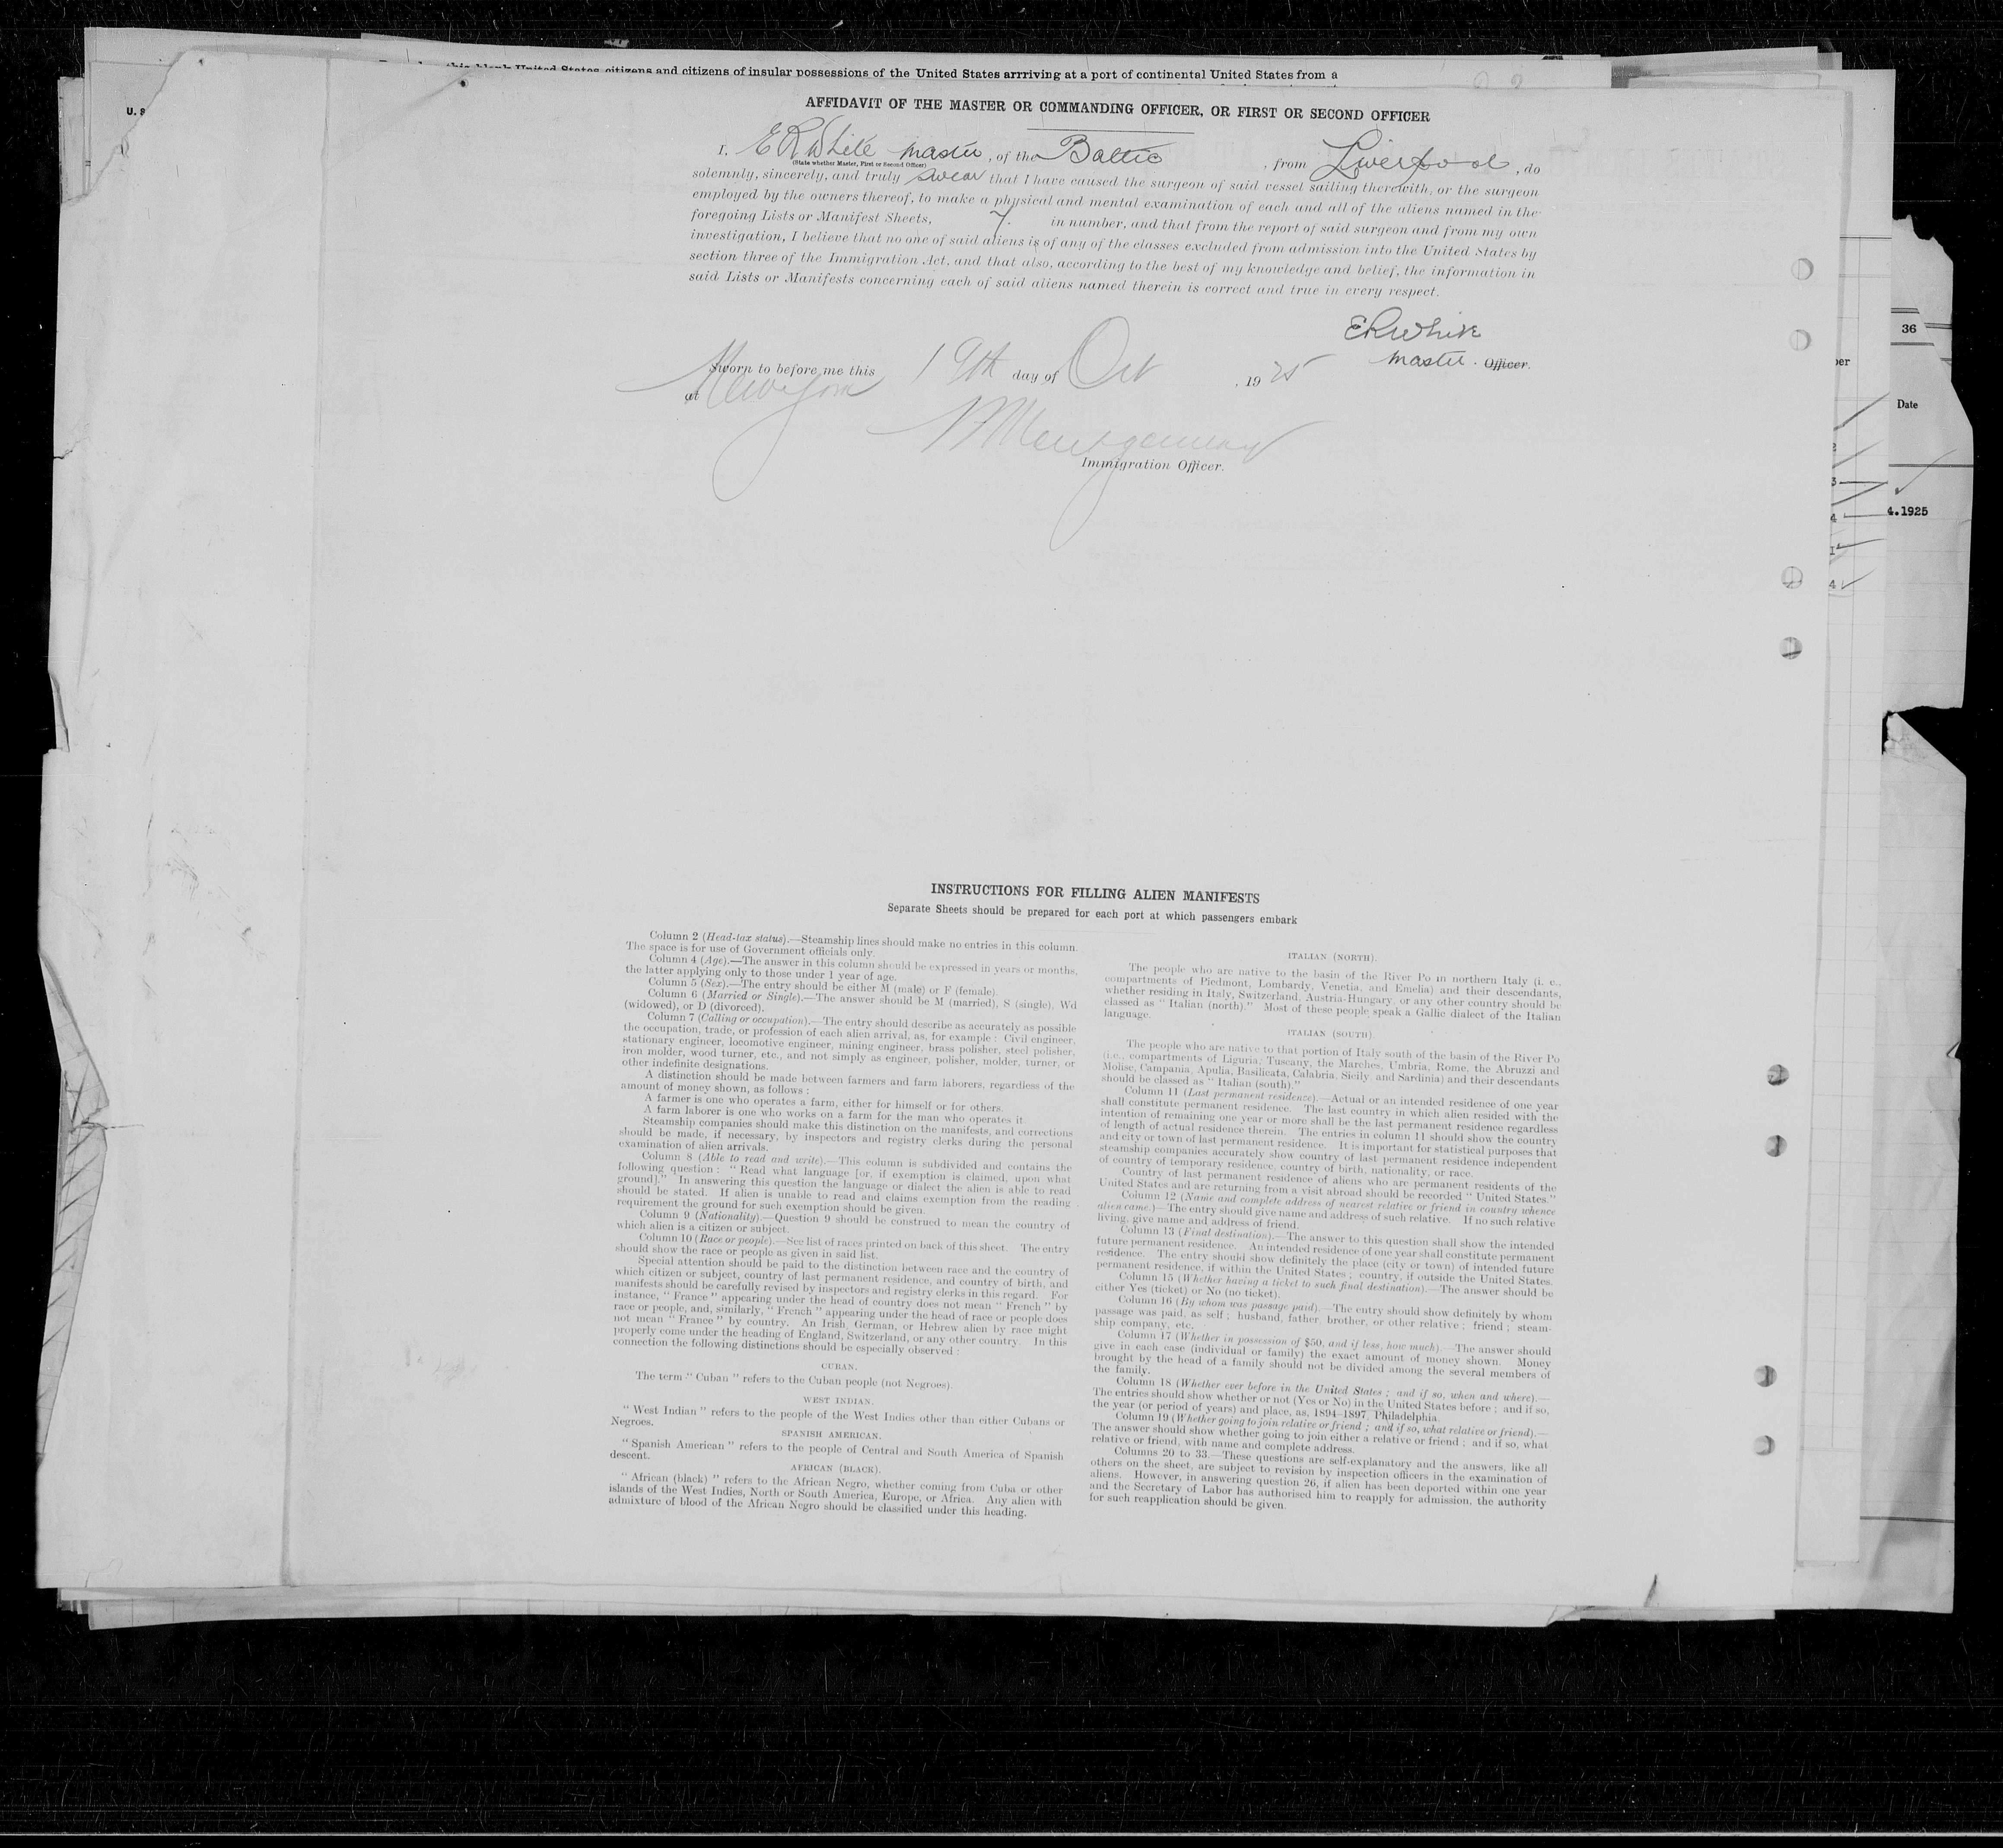 United States citizens and citizens of insular possessions of the United States arrriving at a port of continental United States from a
U. S
AFFIDAVIT OF THE MASTER OR COMMANDING OFFICER, OR FIRST OR SECOND OFFICER
I, E R White master, of the Baltic, from Liverpool, do
(State whether Master, First or Second Officer)
solemnly, sincerely, and truly swear that I have caused the surgeon of said vessel sailing therewith, or the surgeon
employed by the owners thereof, to make a physical and mental examination of each and all of the aliens named in the
foregoing Lists or Manifest Sheets, 7. in number, and that from the report of said surgeon and from my own
investigation, I believe that no one of said aliens is of any of the classes excluded from admission into the United States by
section three of the Immigration Act, and that also, according to the best of my knowledge and belief, the information in
said Lists or Manifests concerning each of said aliens named therein is correct and true in every respect.
E R White
master. Officer.
Sworn to before me this 19th day of Oct, 1925
at New York
Montgomery
Immigration Officer.
36
Date
4.1925
INSTRUCTIONS FOR FILLING ALIEN MANIFESTS
Separate Sheets should be prepared for each port at which passengers embark
Column 2 (Head-tax status).—Steamship lines should make no entries in this column.
The space is for use of Government officials only.
Column 4 (Age).—The answer in this column should be expressed in years or months,
the latter applying only to those under 1 year of age.
Column 5 (Sex).—The entry should be either M (male) or F (female).
Column 6 (Married or Single).—The answer should be M (married), S (single), Wd
(widowed), or D (divorced).
Column 7 (Calling or occupation).—The entry should describe as accurately as possible
the occupation, trade, or profession of each alien arrival, as, for example : Civil engineer,
stationary engineer, locomotive engineer, mining engineer, brass polisher, steel polisher,
iron molder, wood turner, etc., and not simply as engineer, polisher, molder, turner, or
other indefinite designations.
A distinction should be made between farmers and farm laborers, regardless of the
amount of money shown, as follows :
A farmer is one who operates a farm, either for himself or for others.
A farm laborer is one who works on a farm for the man who operates it.
Steamship companies should make this distinction on the manifests, and corrections
should be made, if necessary, by inspectors and registry clerks during the personal
examination of alien arrivals.
Column 8 (Able to read and write).—This column is subdivided and contains the
following question : " Read what language [or, if exemption is claimed, upon what
ground]." In answering this question the language or dialect the alien is able to read
should be stated. If alien is unable to read and claims exemption from the reading
requirement the ground for such exemption should be given.
Column 9 (Nationality).—Question 9 should be construed to mean the country of
which alien is a citizen or subject.
Column 10 (Race or people).—See list of races printed on back of this sheet. The entry
should show the race or people as given in said list.
Special attention should be paid to the distinction between race and the country of
which citizen or subject, country of last permanent residence, and country of birth, and
manifests should be carefully revised by inspectors and registry clerks in this regard. For
instance, " France " appearing under the head of country does not mean " French " by
race or people, and, similarly, " French " appearing under the head of race or people does
not mean " France " by country. An Irish, German, or Hebrew alien by race might
properly come under the heading of England, Switzerland, or any other country. In this
connection the following distinctions should be especially observed :
CUBAN.
The term " Cuban " refers to the Cuban people (not Negroes).
WEST INDIAN.
" West Indian " refers to the people of the West Indies other than either Cubans or
Negroes.
SPANISH AMERICAN.
" Spanish American " refers to the people of Central and South America of Spanish
descent.
AFRICAN (BLACK).
" African (black) " refers to the African Negro, whether coming from Cuba or other
islands of the West Indies, North or South America, Europe, or Africa. Any alien with
admixture of blood of the African Negro should be classified under this heading.
ITALIAN (NORTH).
The people who are native to the basin of the River Po in northern Italy (i. e.,
compartments of Piedmont, Lombardy, Venetia, and Emelia) and their descendants,
whether residing in Italy, Switzerland, Austria-Hungary, or any other country should be
classed as " Italian (north)." Most of these people speak a Gallic dialect of the Italian
language.
ITALIAN (SOUTH).
The people who are native to that portion of Italy south of the basin of the River Po
(i.e., compartments of Liguria, Tuscany, the Marches, Umbria, Rome, the Abruzzi and
Molise, Campania, Apulia, Basilicata, Calabria, Sicily, and Sardinia) and their descendants
should be classed as " Italian (south)."
Column 11 (Last permanent residence).—Actual or an intended residence of one year
shall constitute permanent residence. The last country in which alien resided with the
intention of remaining one year or more shall be the last permanent residence regardless
of length of actual residence therein. The entries in column 11 should show the country
and city or town of last permanent residence. It is important for statistical purposes that
steamship companies accurately show country of last permanent residence independent
of country of temporary residence, country of birth, nationality, or race.
Country of last permanent residence of aliens who are permanent residents of the
United States and are returning from a visit abroad should be recorded " United States."
Column 12 (Name and complete address of nearest relative or friend in country whence
alien came.)—The entry should give name and address of such relative. If no such relative
living, give name and address of friend.
Column 13 (Final destination).—The answer to this question shall show the intended
future permanent residence. An intended residence of one year shall constitute permanent
residence. The entry should show definitely the place (city or town) of intended future
permanent residence, if within the United States ; country, if outside the United States.
Column 15 (Whether having a ticket to such final destination).—The answer should be
either Yes (ticket) or No (no ticket).
Column 16 (By whom was passage paid).—The entry should show definitely by whom
passage was paid, as self ; husband, father, brother, or other relative ; friend ; steam-
ship company, etc.
Column 17 (Whether in possession of $50, and if less, how much).—The answer should
give in each case (individual or family) the exact amount of money shown. Money
brought by the head of a family should not be divided among the several members of
the family.
Column 18 (Whether ever before in the United States ; and if so, when and where).—
The entries should show whether or not (Yes or No) in the United States before ; and if so,
the year (or period of years) and place, as, 1894-1897, Philadelphia.
Column 19 (Whether going to join relative or friend ; and if so, what relative or friend).—
The answer should show whether going to join either a relative or friend ; and if so, what
relative or friend, with name and complete address.
Columns 20 to 33.—These questions are self-explanatory and the answers, like all
others on the sheet, are subject to revision by inspection officers in the examination of
aliens. However, in answering question 26, if alien has been deported within one year
and the Secretary of Labor has authorised him to reapply for admission, the authority
for such reapplication should be given.